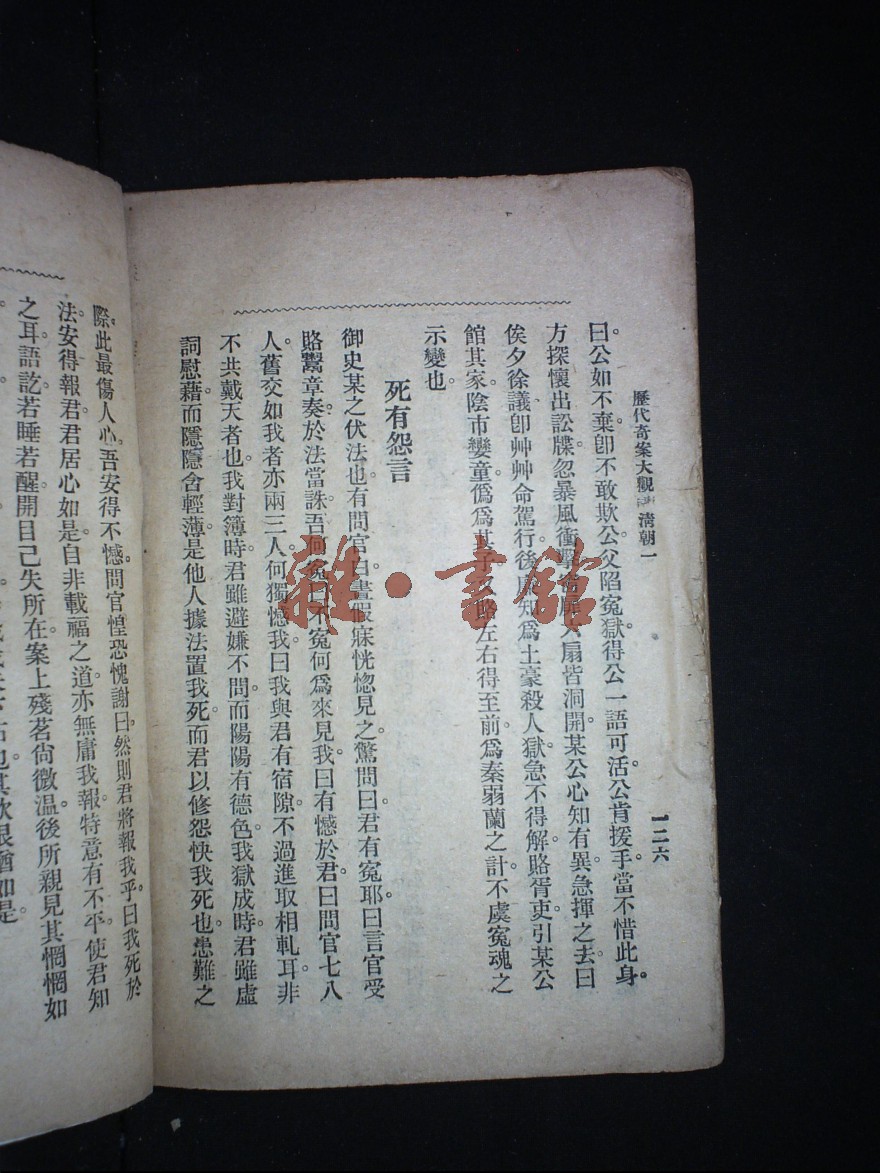 歷代奇案大觀 清朝一
一二六
曰。公如不棄。卽不敢欺公。父陷寃獄。得公一語可活。公肯援手。當不惜此身。
方探懷出訟牒。忽暴風衝擊。窗扉六扇皆洞開。某公心知有異。急揮之去。曰
俟夕徐議。卽艸艸命駕行。後廉知爲土豪殺人獄急不得解。賂胥吏引某公
館其家。陰市孌童僞爲其子。又賂左右。得至前。爲秦弱蘭之計。不虞寃魂之
示變也。
死有怨言
御史某之伏法也。有問官白晝假寐。恍惚見之。驚問曰。君有寃耶。曰。言官受
賂鬻章奏。於法當誅。吾何寃。曰。不寃何爲來見我。曰。有憾於君。曰。問官七八
人。舊交如我者。亦兩三人。何獨憾我。曰。我與君有宿隙。不過進取相軋耳。非
不共戴天者也。我對簿時。君雖避嫌不問。而陽陽有德色。我獄成時。君雖虛
詞慰藉。而隱隱含輕薄。是他人據法置我死。而君以修怨快我死也。患難之
際。此最傷人心。吾安得不憾。問官惶恐愧謝曰。然則君將報我乎。曰。我死於
法。安得報君。君居心如是。自非載福之道。亦無庸我報。特意有不平。使君知
之耳。語訖。若睡若醒。開目已失所在。案上殘茗尙微溫。後所親見其惘惘如
也。其飲恨猶如是。
雜·書館